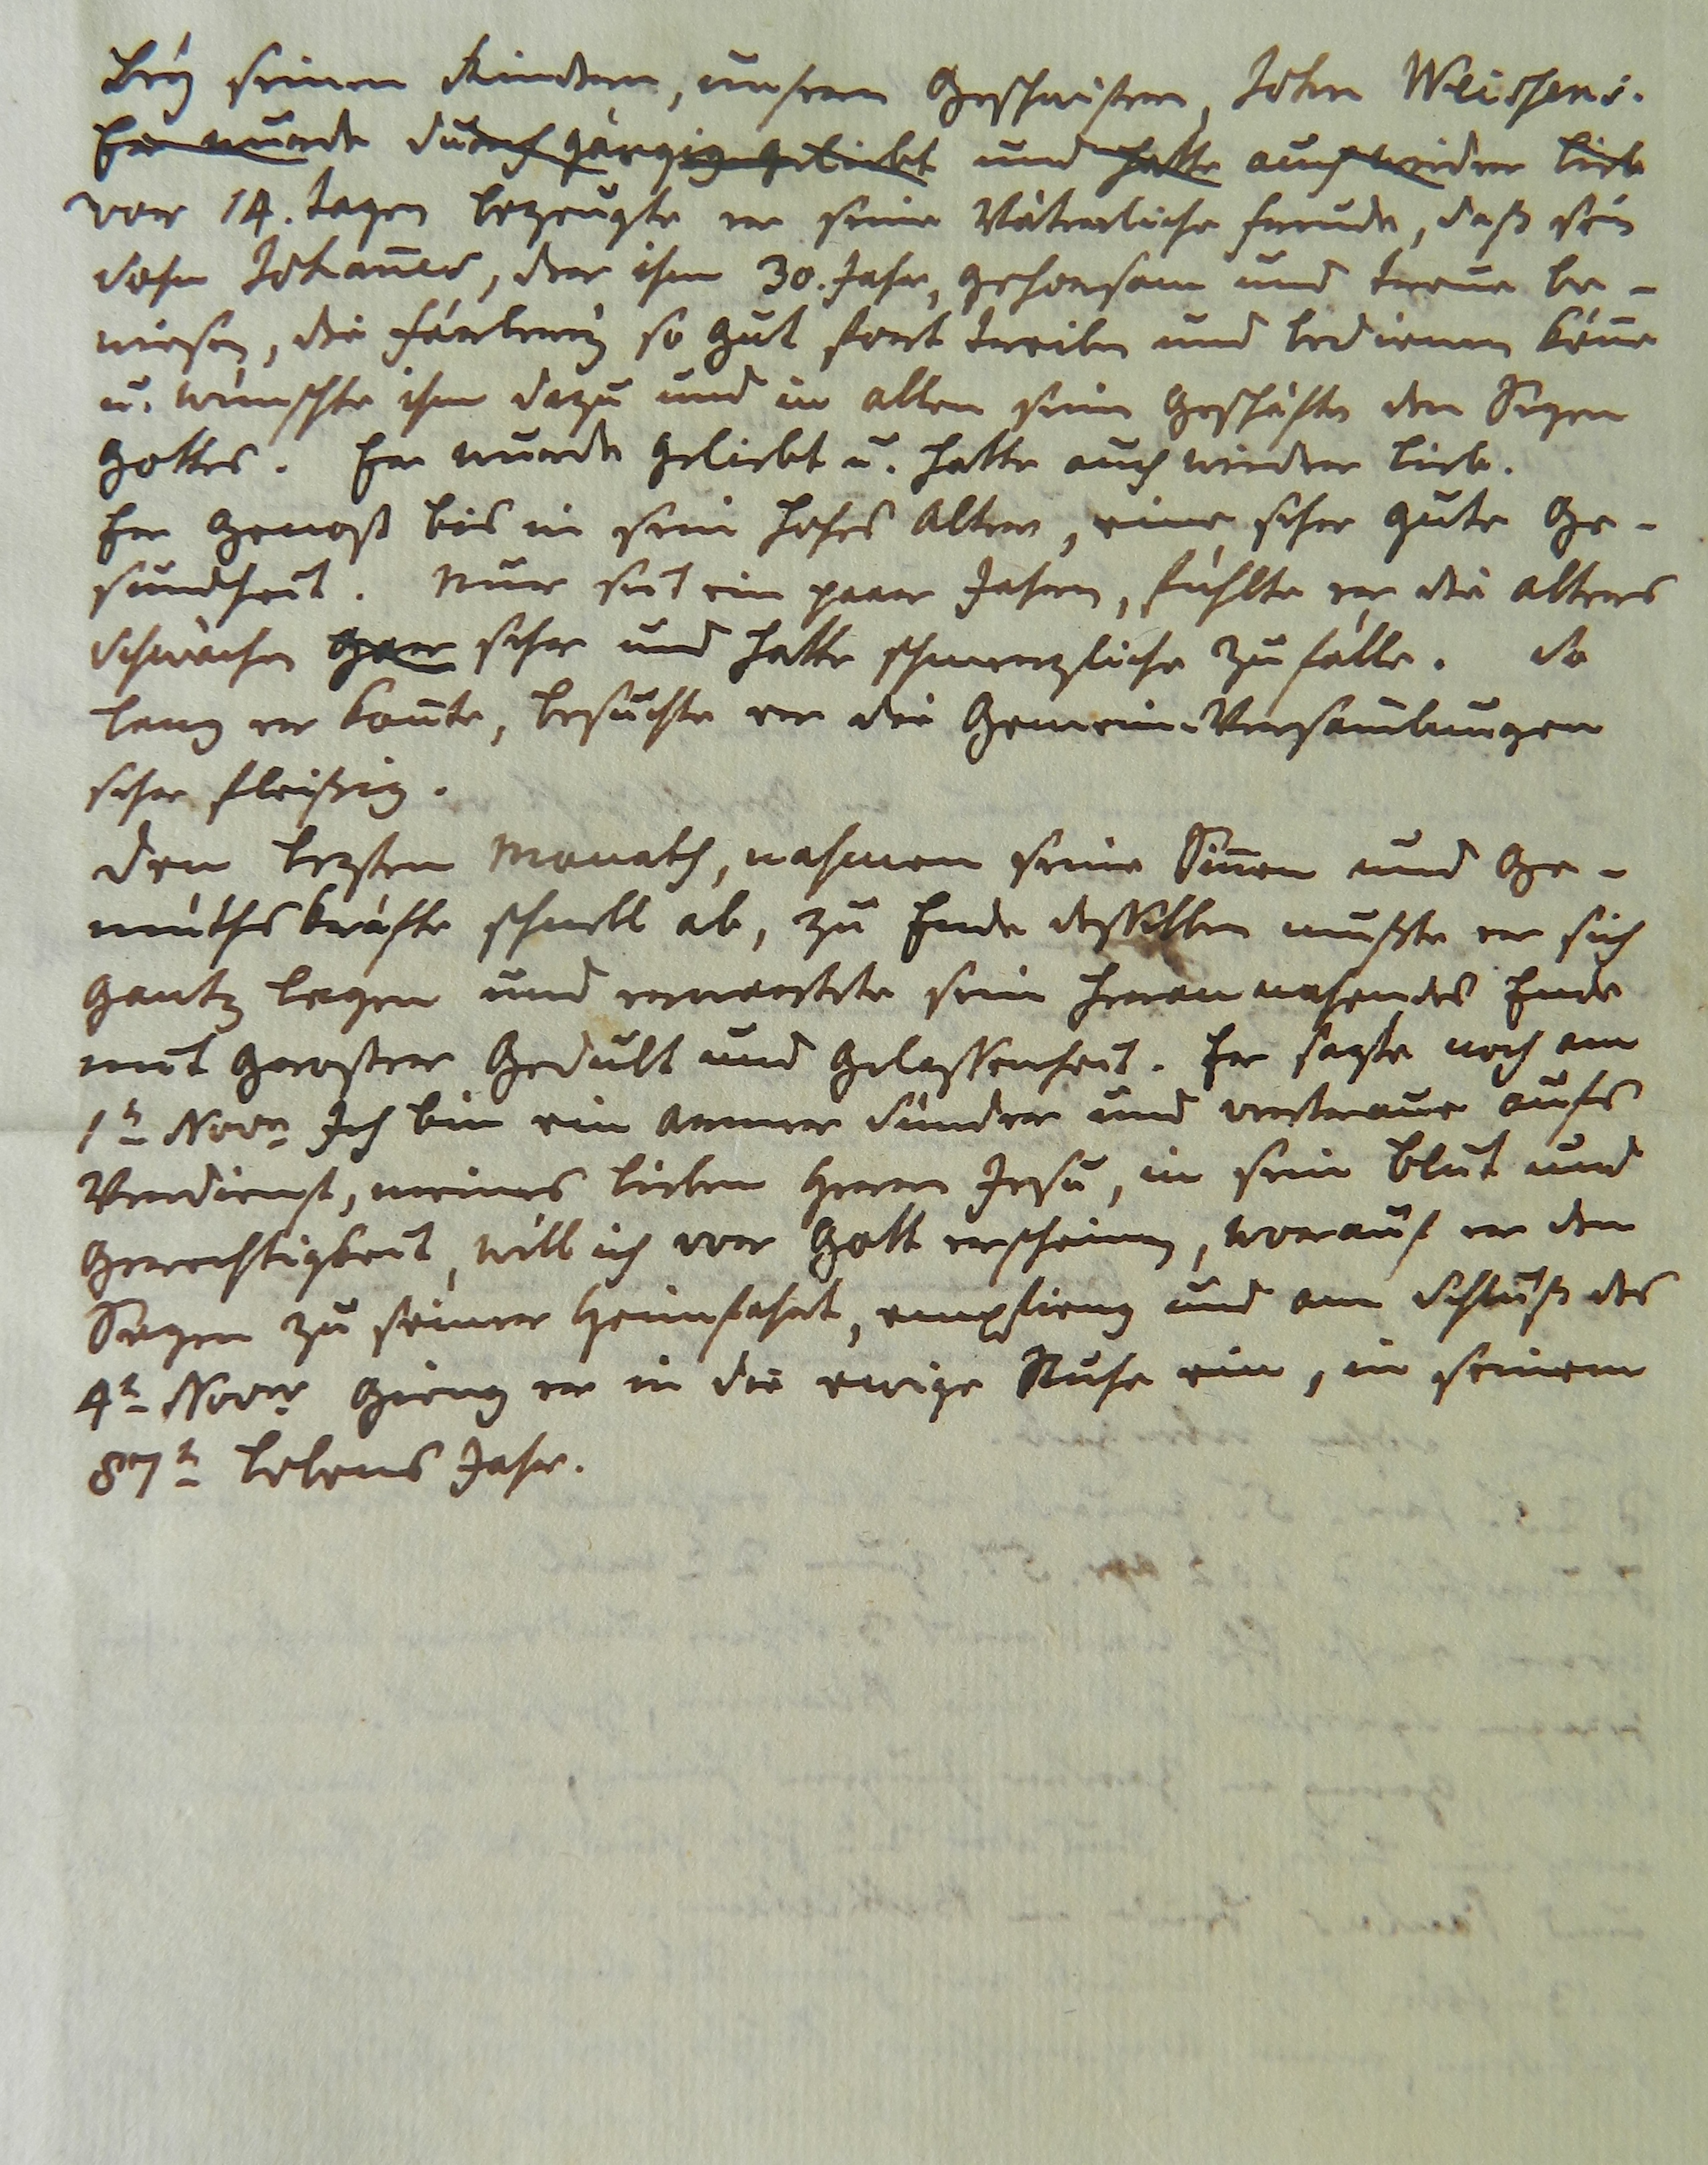 bey seinen Kindern, unsern Geschwistern, John Weissens.
Er wurde durchgängig geliebt und hatte auch wieder lieb
vor 14. Tagen bezeugte er seine Väterliche freude, daß sein
Sohn Johañes, der ihm 30. Jahr, gehorsam und treue be-
wiesen, die färberey so gut fort treiben und bedienen köñe
u. wünschte ihm dazu und in allen sein Geschäfte den Segen
Gottes. Er wurde geliebt u. hatte auch wieder lieb.
Er genoß bis in sein hohes Alter, eine sehr gute Ge-
sundheit. Nur seit ein paar Jahren, fühlte er die alters
schwachen gar sehr und hatte schmerzliche Zufälle. So
lang er koñte, besuchte er die Gemein-Versam̄lungen
sehr fleißig.
Den lezten Monath, nahmen seine Siñen und Ge-
müthskräfte schnell ab, zu Ende desselben mußte er sich
gantz legen und erwartete sein herannahendes Ende
mit groster Gedult und Gelassenheit. Er sagte noch am
1n Novr Ich bin ein armer Sünder und vertraue aufs
Verdienst, meines lieben Herrn Jesu, in sein Blut und
Gerechtigkeit, will ich vor Gott erscheinen, worauf er den
Segen zu seiner Heimfahrt, empfieng und am Schluß des
4n Novr gieng er in die ewige Ruhe ein, in seinem
87n lebens Jahr.